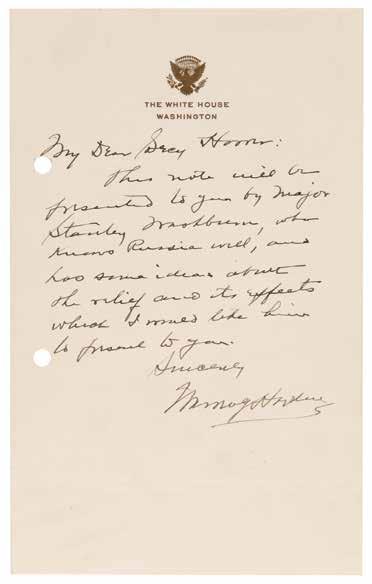 THE WHITE HOUSE
WASHINGTON
My Dear Secy Hoover:
This note will be
presented to you by Major
Stanley Washburn, who
knows Russia well, and
has some ideas about
the relief and its effects
which I would like him
to present to you.
Sincerely
Warren G Harding